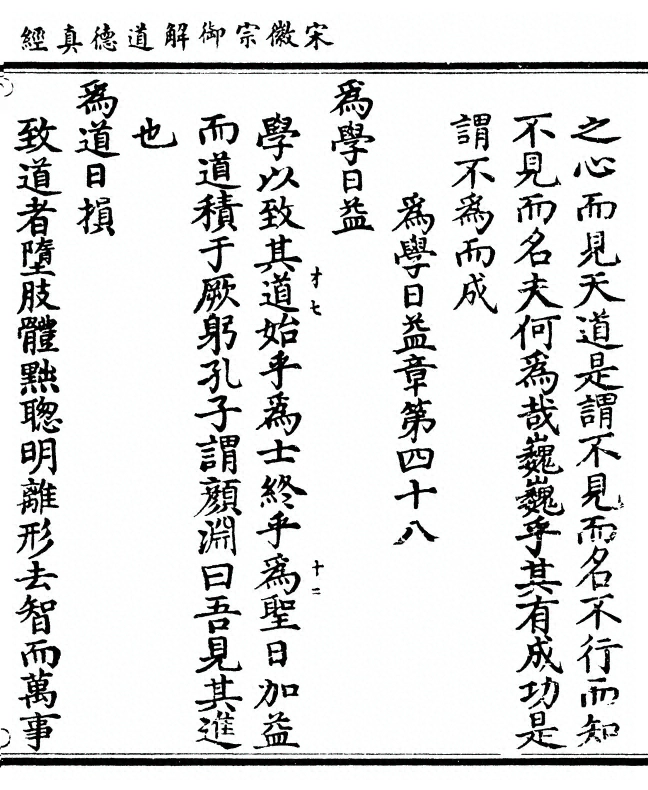 宋徽宗御解道德真經
之心而見天道是謂不見而名不行而知
不見而名夫何為哉巍巍乎其有成功是
謂不為而成
為學日益章第四十八
為學日益
學以致其道始乎為士終乎為聖日加益
才七
十二
而道積于厥躬孔子謂顏淵曰吾見其進
也
為道日損
致道者墮肢體黜聰明離形去智而萬事